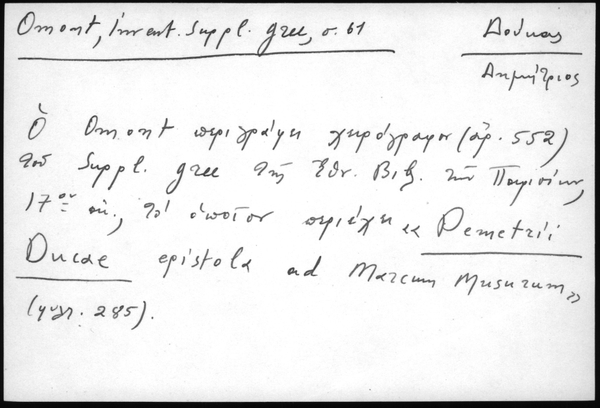 Omont, Invent. Suppl. grec, σ. 61
Δούκας
Δημήτριος
Ὁ Omont περιγράφει χειρόγραφον (ἀρ. 552)
τοῦ Suppl. grec τῆς Ἐθν. Βιβ. τῶν Παρισίων,
17ου αἰ., τὸ ὁποῖον περιέχει «Demetrii
Ducae epistola ad Marcum Musurum»
(φύλ. 285).